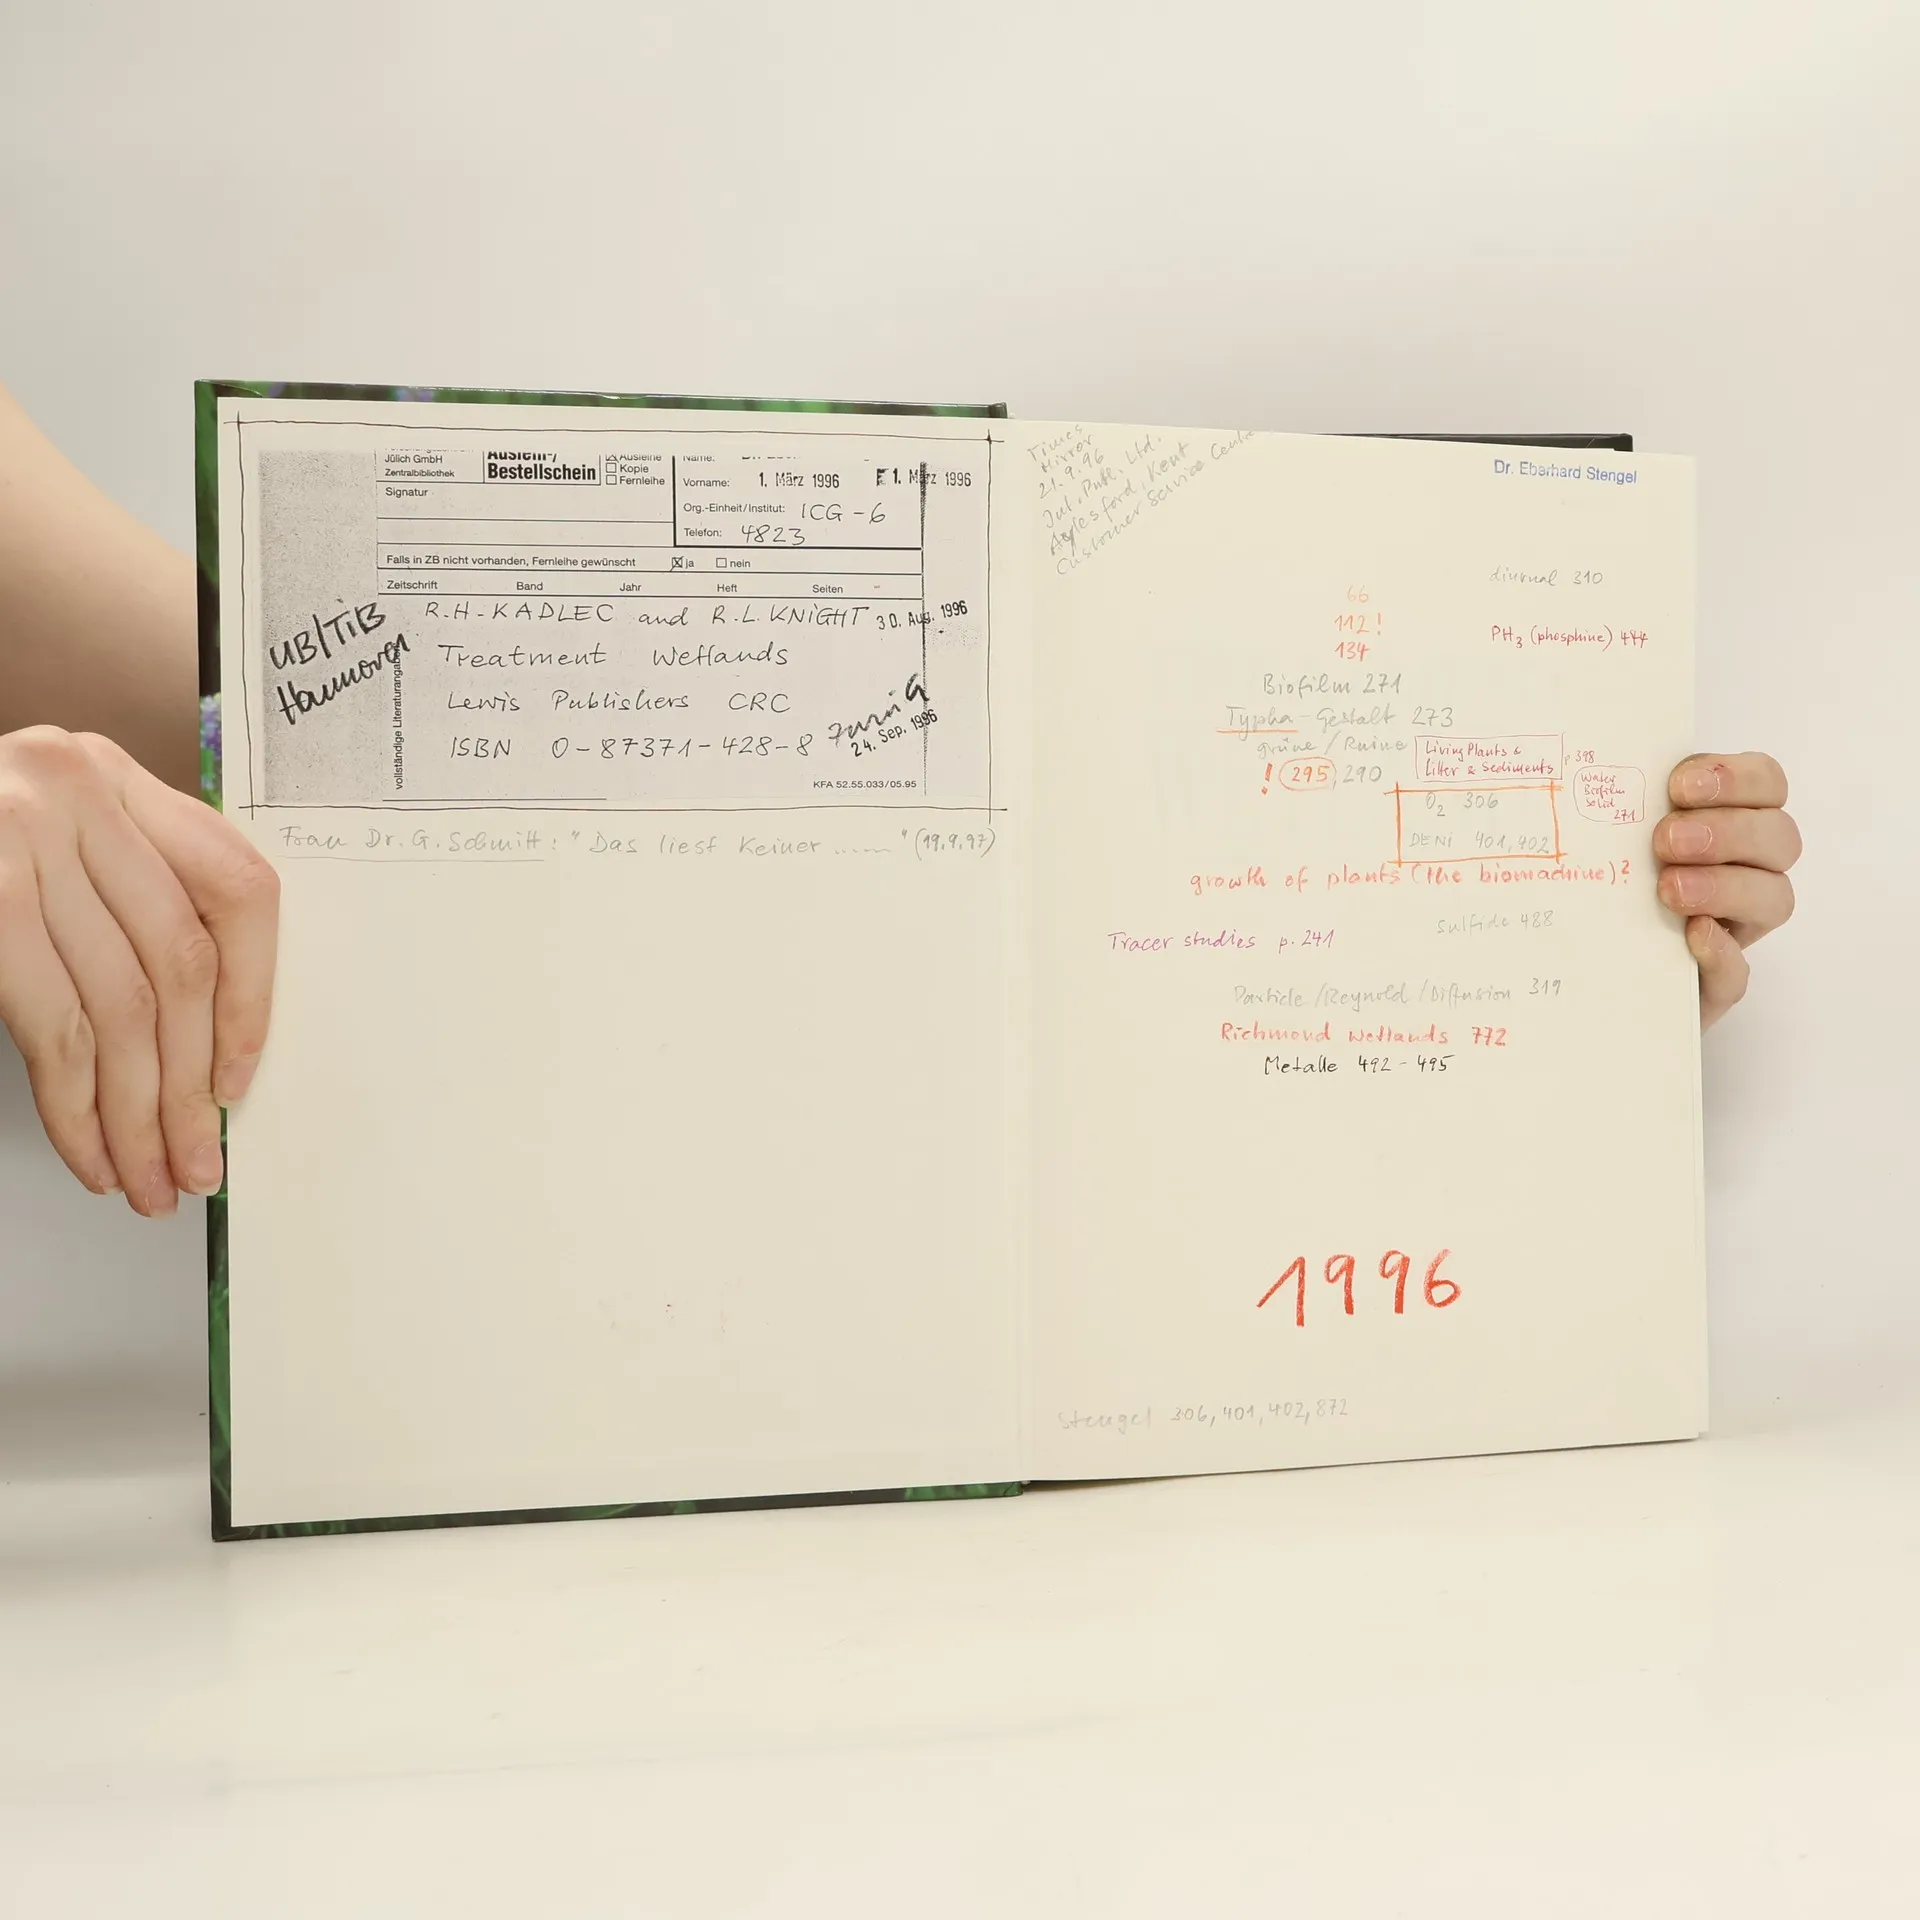 Jülich GmbH
Zentralbibliothek
Bestellschein
Ausleihe
Kopie
Fernleihe
Name:
Vorname: 1. März 1996 E 1. März 1996
Signatur
Org.-Einheit/Institut: ICG-6
Telefon: 4823
Falls in ZB nicht vorhanden, Fernleihe gewünscht ja nein
Zeitschrift Band Jahr Heft Seiten
UB/TiB
Hannover
vollständige Literaturangaben
R.H-KADLEC and R.L. KNiGHT
30. Aug. 1996
Treatment Wetlands
Lewis Publishers CRC
ISBN 0-87371-428-8
zurück
24. Sep. 1996
KFA 52.55.033/05.95
Frau Dr. G. Schmitt: "Das liest keiner ......" (19.9.97)
Times
Mirror
21.9.96
Int. Publ. Ltd.
Aylesford, Kent
Customer Service Centre
Dr. Eberhard Stengel
diurnal 310
66
112!
134
PH3 (phosphine) 444
Biofilm 271
Typha-Gestalt 273
grüne / Ruine
! 295, 290
Living Plants &
Litter & Sediments
p 398
Water
Biofilm
Solid
271
O2 306
DENi 401, 402
growth of plants (the biomachine)?
sulfide 488
Tracer studies p. 241
Particle /Reynold /Diffusion 319
Richmond wetlands 772
Metalle 492 - 495
1996
Stengel 306, 401, 402, 872